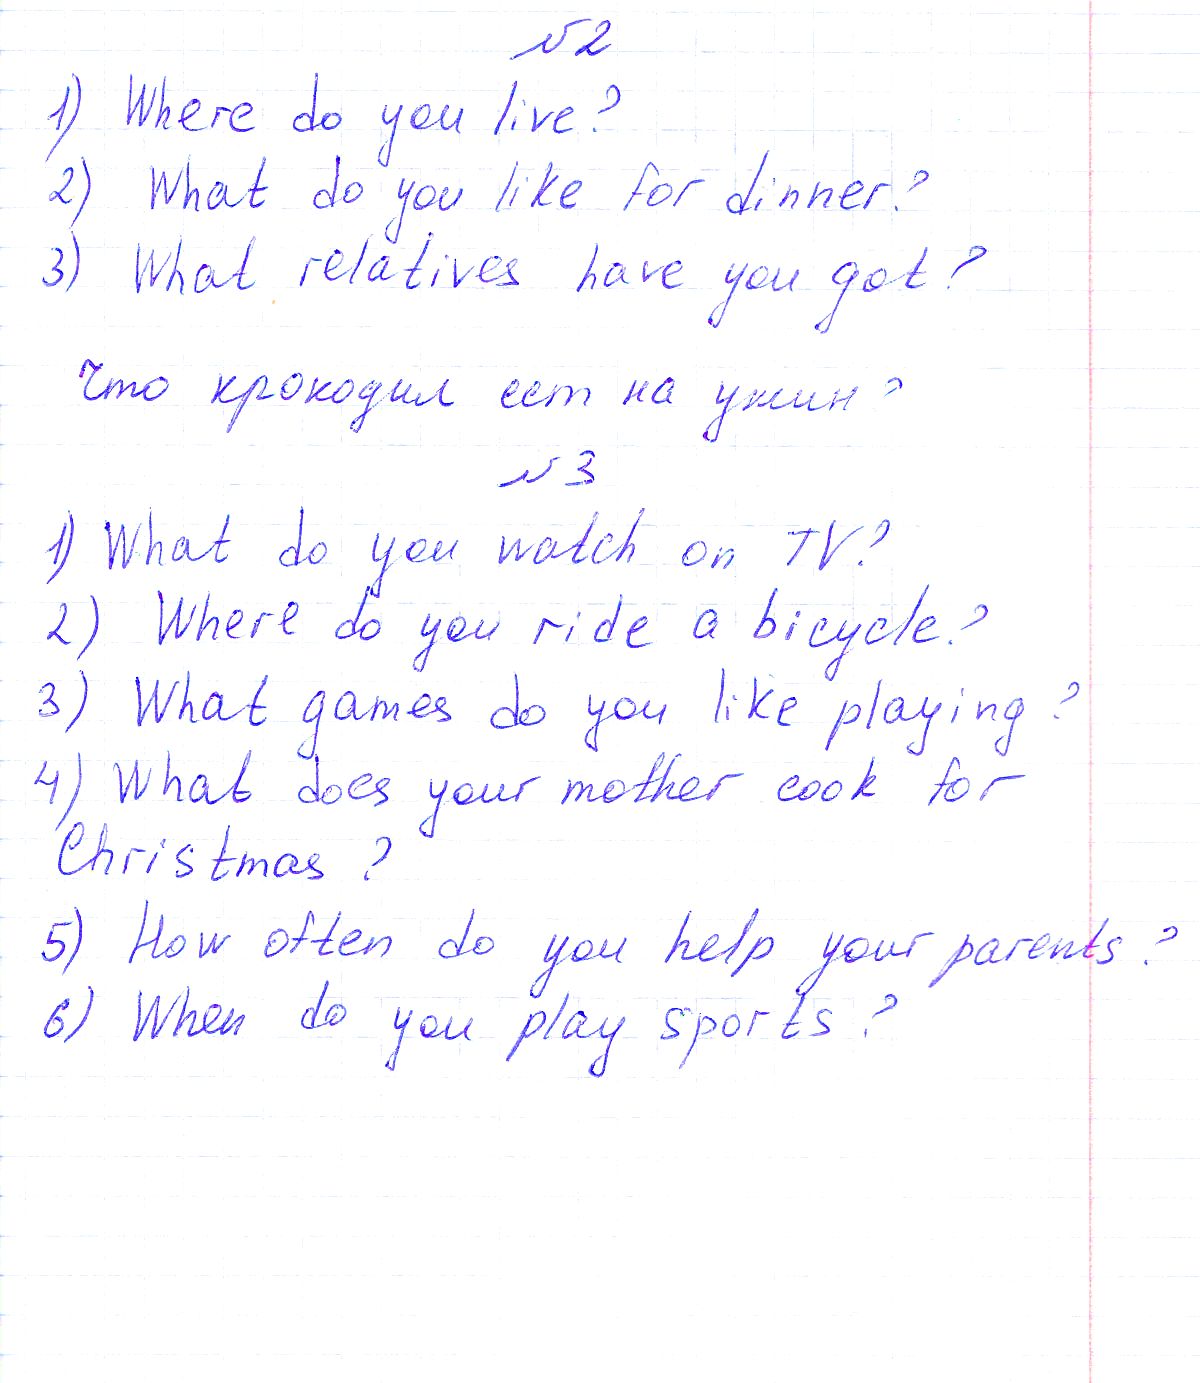 №2
1) Where do you live?
2) What do you like for dinner?
3) What relatives have you got?
Что крокодил ест на ужин?
№3
1) What do you watch on TV?
2) Where do you ride a bicycle?
3) What games do you like playing?
4) What does your mother cook for
Christmas?
5) How often do you help your parents?
6) When do you play sports?